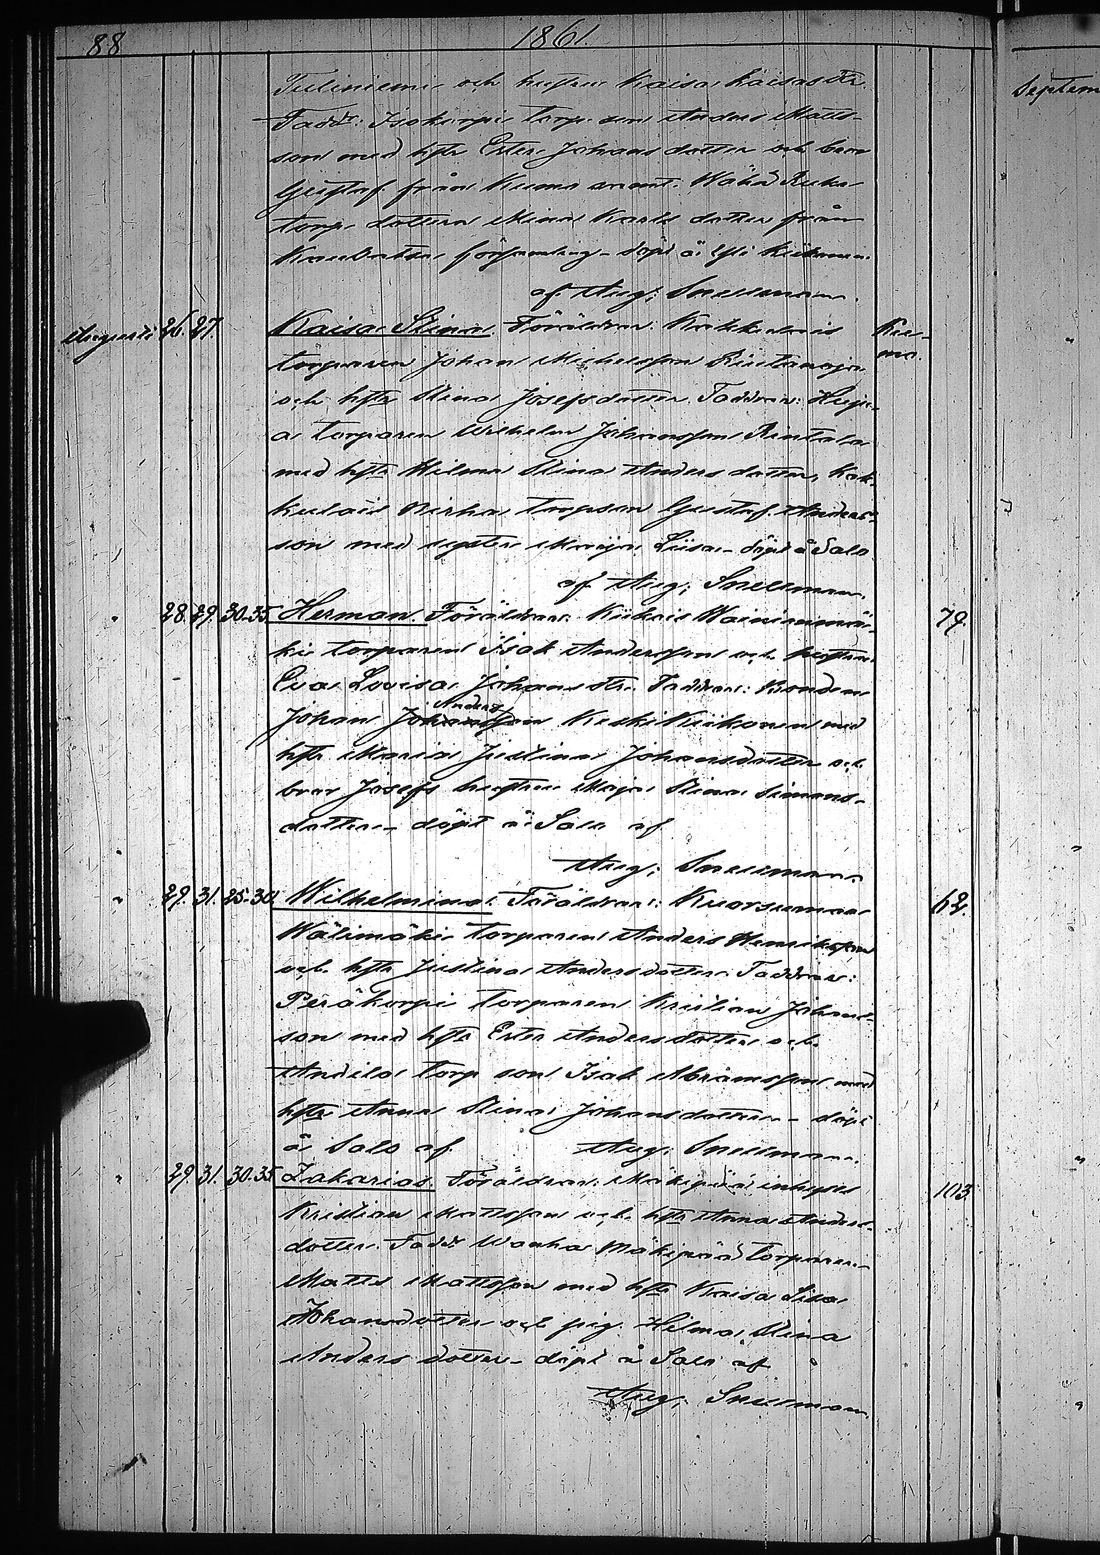 88
1861.
och hustrun Kaisa
Fadd: Isokorpi torp. son Anders Matts-
son med hstr Ester Johansdotter och bror
Gustaf från Kumo samt
torp. dottern Mina Karlsdotter från
församling - döpt å
af Aug: Snellman.
Augusti 26. 27. Kaisa Stina. Föräldrar: Kakkulais Ku-
torparen Johan Michelsson mo.
och hstr Stina Josefsdotter. Faddrar:
torparen Wilhelm Johansson Rintala
med hstr Wilma Stina Andersdotter, Kak-
kulais torpson Gustaf Anders-
son med syster Maija Liisa - döpt å Salo
af Aug: Snellman.
" 28. 29. 30-35 Herman. Föräldrar: Kiikois Wainionmä- 79.
ki torparen Isak Andersson och hustrun
Eva Lovisa Johansdtr. Faddrar: Bonden
Anders
Johan Johansson KeskiKiikonen med
hstr Maria Justina Johansdotter och
bror Josefs hustru Maja Stina Simons-
dotter - döpt å Salo af
Aug: Snellman.
" 29. 31. 25-30. Wilhelmina. Föräldrar: Kuorsumaa 62.
Wälimäki torparen Anders Henriksson
och hstr Justina Andersdotter. Faddrar:
Peräkorpi torparen Kristian Johans-
son med hstr Ester Andersdotter och
Andila torp son Isak Abramsson med
hstr Anna Stina Johansdotter - döpt
å Salo af Aug: Snellman.
" 29. 31. 30-35 Zakarias. Föräldrar: Mäkipää inhyses 103
Kristian Mattsson och hstr Anna Anders-
dotter. Fadd: Wanha Mäkipää torparen
Matts Mattsson med hstr Kaisa Lisa
Johansdotter och pig. Helma Stina
Anders dotter - döpt å Salo af
Aug: Snellman
Septem